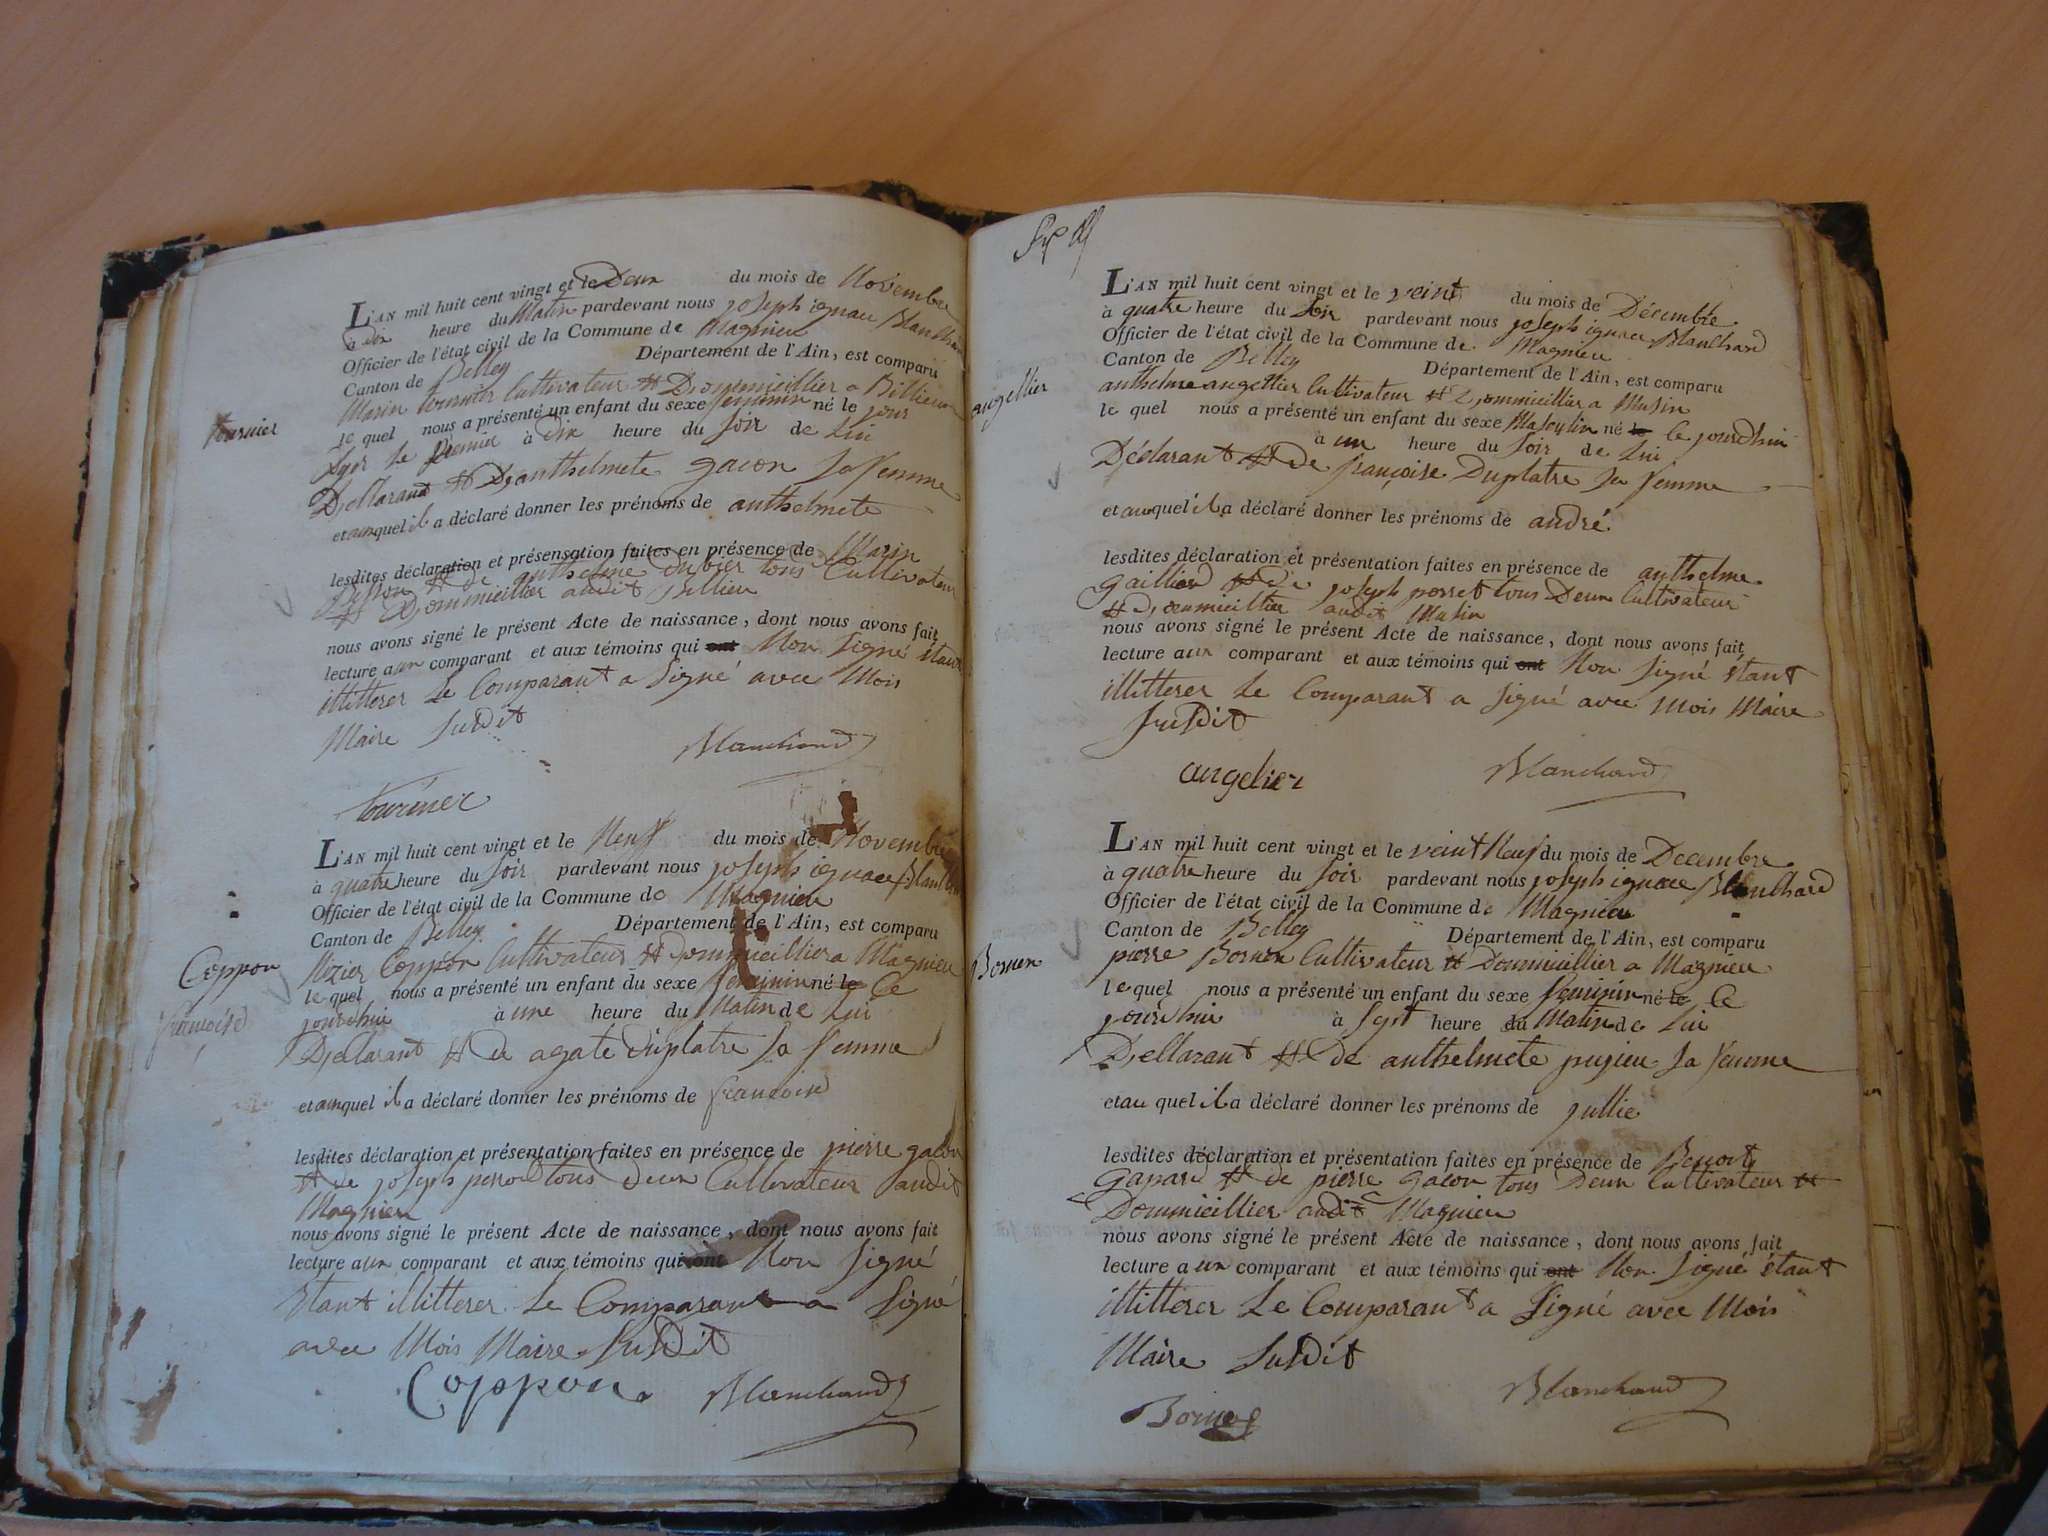 L'AN mil huit cent vingt et le Deux du mois de Novembre
à Dix heure du Matin pardevant nous joseph ignace Blanchard
Officier de l'état civil de la Commune de Magnieu
Canton de Belley Département de l'Ain, est comparu
Marin tournier Cultivateur et Dommicillier a Billieux
tournier
le quel nous a présenté un enfant du sexe feminin né le jour
hyer le premier à Dix heure du soir de Lui
Dellarant et D'anthelmete gacon sa femme
et auquel il a déclaré donner les prénoms de anthelmete
lesdites déclaration et présensation faites en présence de Marin
et de anthelme Dubier tous Cultivateur
et Dommicillier audit Billieu
nous avons signé le présent Acte de naissance, dont nous avons fait
lecture aux comparant et aux témoins qui ont Non Signé étant
illitterer Le Comparant a Signé avec Mois
Maire Susdit
Blanchard
tournier
L'AN mil huit cent vingt et le Neuf du mois de Novembre
à quatre heure du soir pardevant nous joseph ignace Blanchard
Officier de l'état civil de la Commune de Magnieu
Canton de Belley Département de l'Ain, est comparu
Nizier Coppon Cultivateur et Dommicillier a Magnieu
Coppon
le quel nous a présenté un enfant du sexe feminin né le Ce
jourd'hui à une heure du Matin de Lui
françoise
Déclarant et de agate Duplatre sa femme
et auquel il a déclaré donner les prénoms de francoise
lesdites déclaration et présentation faites en présence de pierre gacon
et de joseph perrod tous deux Cultivateur audit
Magnieu
nous avons signé le présent Acte de naissance, dont nous avons fait
lecture aux comparant et aux témoins qui ont Non Signé
étant illitterer Le Comparant a Signé
avec Mois Maire Susdit
Coppon Blanchard
L'AN mil huit cent vingt et le veint du mois de Décembre
à quatre heure du Soir pardevant nous joseph ignace Blanchard
Officier de l'état civil de la Commune de Magnieu
Canton de Belley Département de l'Ain, est comparu
anthelme angellier Cultivateur et Dommicillier a Musin
angellier
le quel nous a présenté un enfant du sexe Masculin né le Ce jourdhui
à un heure du Soir de Lui
Déclarant et De françoise Duplatre sa femme
et au quel il a déclaré donner les prénoms de andré
lesdites déclaration et présentation faites en présence de anthelme
gaillard et De joseph perret tous Deux Cultivateur
et Dommicillier audit Musin
nous avons signé le présent Acte de naissance, dont nous avons fait
lecture aux comparant et aux témoins qui ont Non Signé étant
illitterer Le Comparant a Signé avec Mois Maire
Susdit
angelier Blanchard
L'AN mil huit cent vingt et le veint Neuf du mois de Decembre
à quatre heure du Soir pardevant nous joseph ignace Blanchard
Officier de l'état civil de la Commune de Magnieu
Canton de Belley Département de l'Ain, est comparu
pierre Bornen Cultivateur et Dommicillier a Magnieu
Bornen
le quel nous a présenté un enfant du sexe feminin né le Ce
jourd'hui à Sept heure du Matin de Lui
Dellarant et De anthelmete pujieu sa femme
et au quel il a déclaré donner les prénoms de jullie
lesdites déclaration et présentation faites en présence de Benoit
Gapard et de pierre gacon tous Deux Cultivateur et
Dommicillier audit Magnieu
nous avons signé le présent Acte de naissance, dont nous avons fait
lecture aux comparant et aux témoins qui ont Non Signé étant
illitterer Le Comparant a Signé avec Mois
Maire Susdit
Blanchard